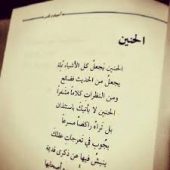 الحنين
الحنين يجعل كل الأشياء
يجعل من الحديث فضائح
ومن النظرات كلاماً مشفراً
الحنين لا يأتيك باستئذان
بل تراه راكضاً مسرعاً
يجوب في تعرجات عقلك
ينبش فيها عن ذكرى قديمة